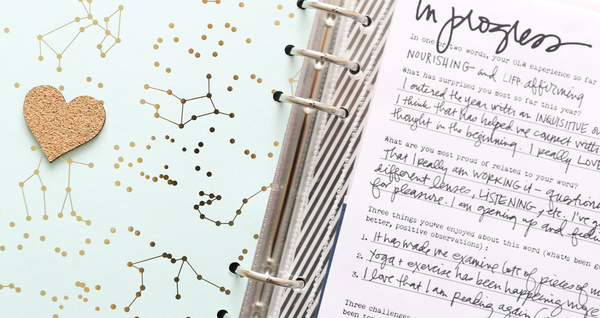 in progress
In one or two words, your OLW experience so far
NOURISHING and LIFE affirming
What has surprised you most so far this year?
I entered the year with an INQUISITIVE
I think that has helped me connect with
thought in the beginning. I really LOVE
What are you most proud of related to your word?
That I really am WORKING it - questioning
different lenses, LISTENING, etc. I've
for pleasure. I am opening up and
Three things you've enjoyed about this word (What's been
better, positive observations):
1. It has made me examine lots of pieces of
2. Yoga + exercise has been happening more
3. I love that I am reading again
Three challenges
been